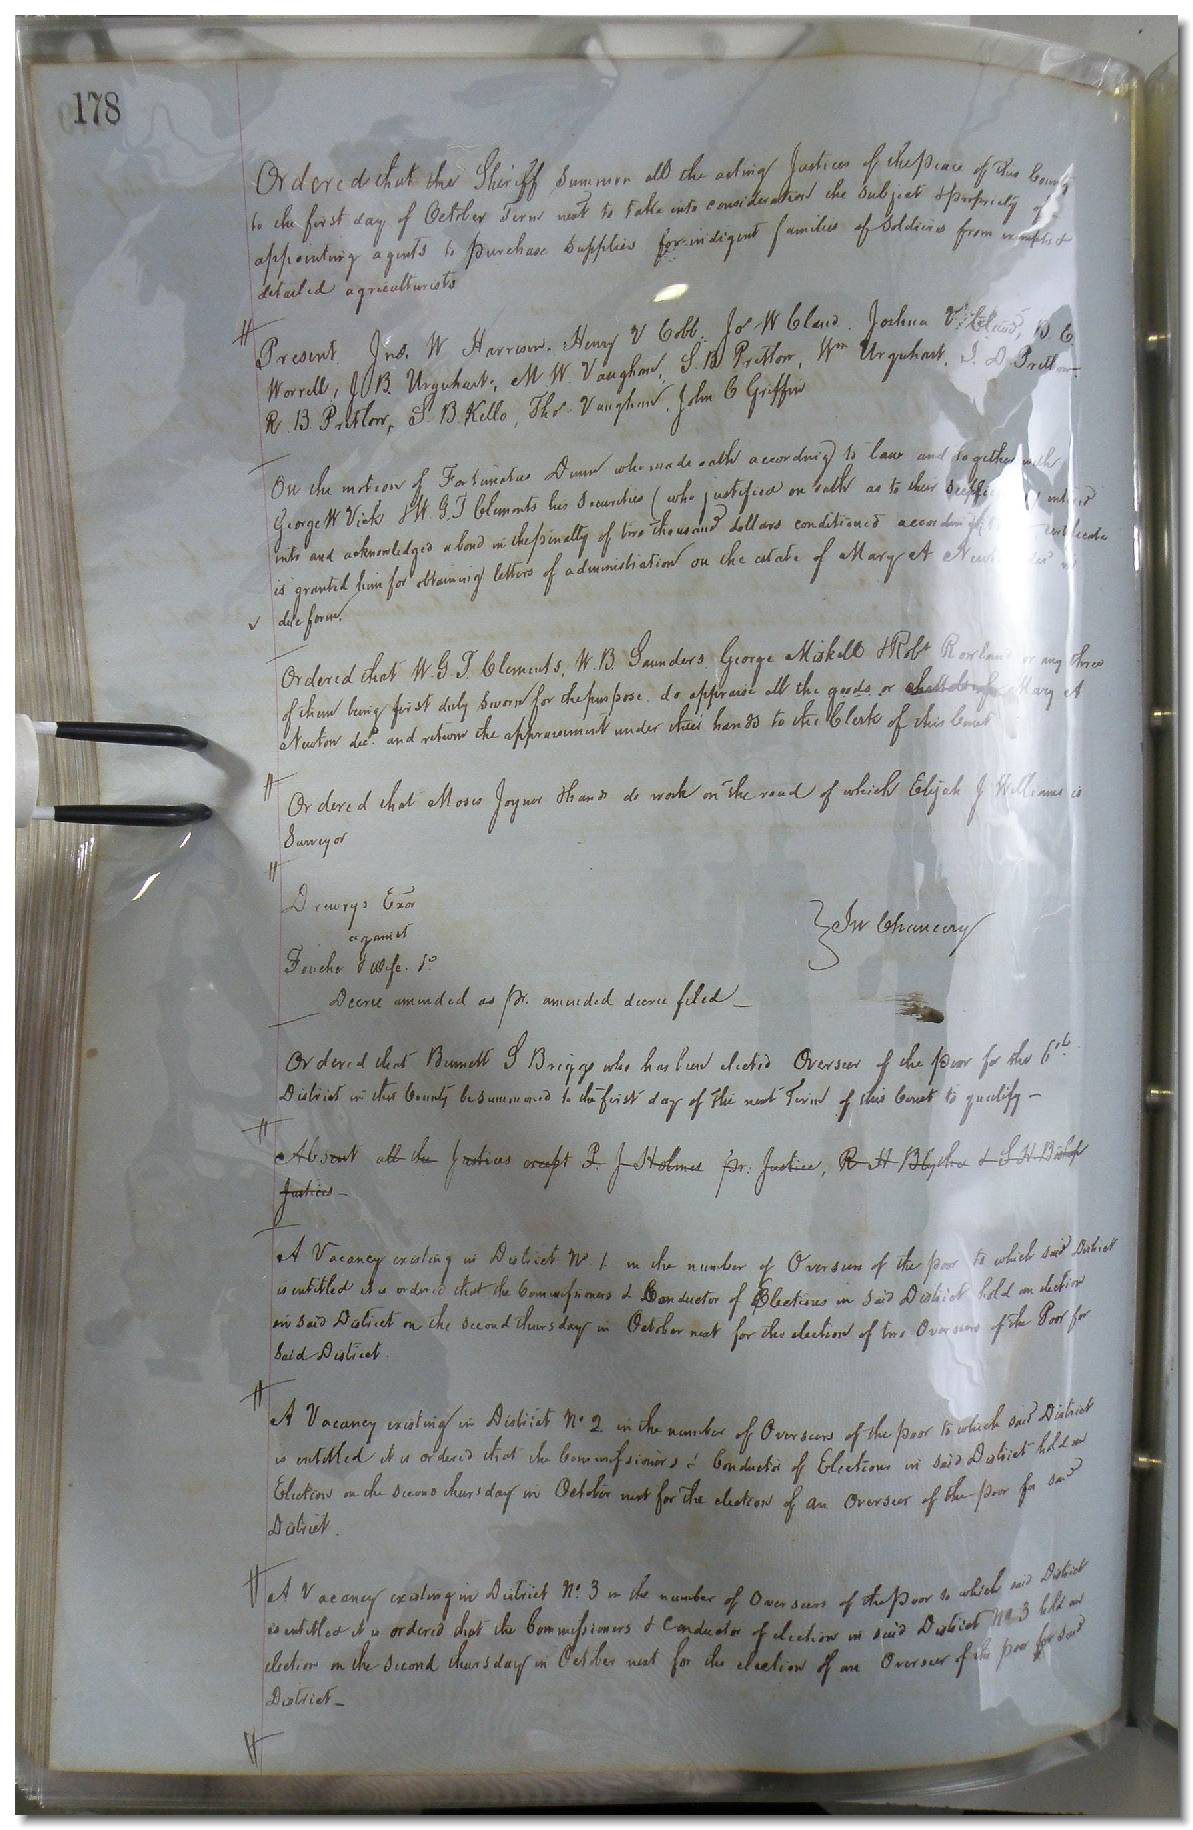 178
Ordered that the Sheriff Summon all the acting Justices of the peace of this County
to the first day of October Term next to take into consideration the subject & propriety of
appointing agents to purchase supplies for indigent families of Soldiers from exempts &
detailed agriculturists
Present Jno. W Harrison, Henry V Cobb, Jo W Claud, Joshua V. Claud, B. C.
Worrell, J. B. Urquhart, M W. Vaughan, S. B Pretlow, Wm Urquhart, J. D. Pretlow
R. B. Pretlow, S. B. Kello, Thos Vaughan, John C Griffin
On the motion of Fortunatus Dunn who made oath according to law and together with
George W Vick & W. G. T Clements his Securities (who justified on oath as to their entered
into and acknowledged a bond in the penalty of two thousand dollars conditioned according certificate
is granted him for obtaining letters of administration on the estate of Mary A dec'd in
due form.
Ordered that W. G. T. Clements, W. B. Saunders, George Miskell & Robt Rowland or any three
of them being first duly Sworn for the purpose do appraise all the goods or Mary A
Newton decd. and return the appraisement under their hands to the Clerk of this Court
Ordered that Moses Joyner & hands do work on the road of which Elijah J Williams is
Surveyor
Drewrys Exor
against
& wife.
In Chancery
Decree amended as pr. amended decree filed
Ordered that Bennett S Briggs who has been elected Overseer of the poor for the 6th
District in this County be summoned to the first day of the next Term of this Court to qualify
Absent all the Justices except P. J Holmes pr. Justice, R H Blythe & S H Bishop
Justices
A Vacancy existing in District No 1 in the number of Overseers of the poor to which said District
is entitled it is ordered that the Commissioners & Conductor of Elections in said District hold an election
in said District on the second thursday in October next for the election of two Overseers of the Poor for
Said District.
A Vacancy existing in District No 2 in the number of Overseers of the poor to which said District
is entitled it is ordered that the Commissioners & Conductor of Elections in said District hold an
Election on the second thursday in October next for the election of an Overseer of the poor for said
District.
A Vacancy existing in District No. 3 in the number of Overseers of the Poor to which said District
is entitled it is ordered that the Commissioners & Conductor of election in said District No 3 hold an
election on the second thursday in October next for the election of an Overseer of the poor for said
District